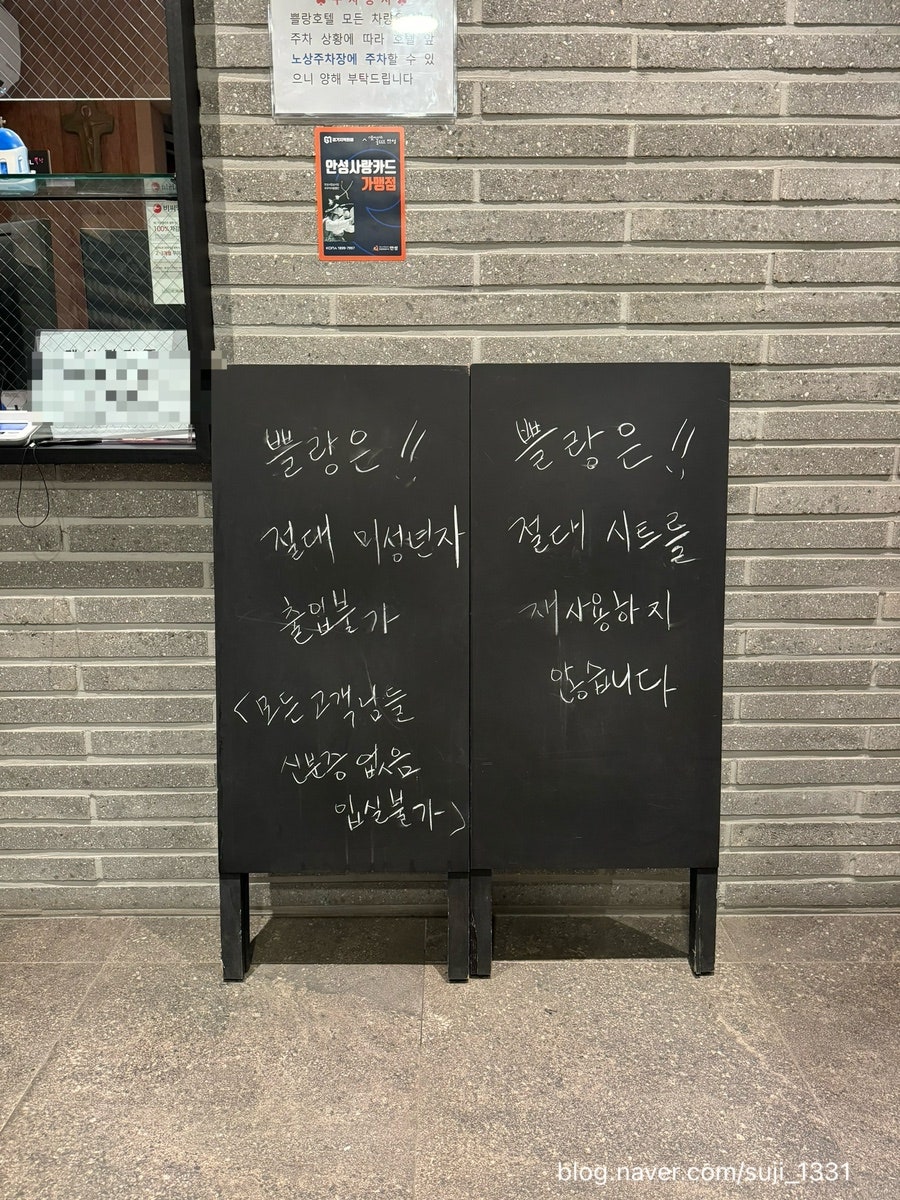 쁠랑호텔 모든 차량은
주차 상황에 따라 호텔 앞
노상주차장에 주차할 수 있
으니 양해 부탁드립니다
안성사랑카드
가맹점
쁠랑은 !!
절대 미성년자
출입불가
<모든 고객님들
신분증 없음
입실불가>
쁠랑은 !!
절대 시트를
재사용하지
않습니다
blog.naver.com/suji_1331